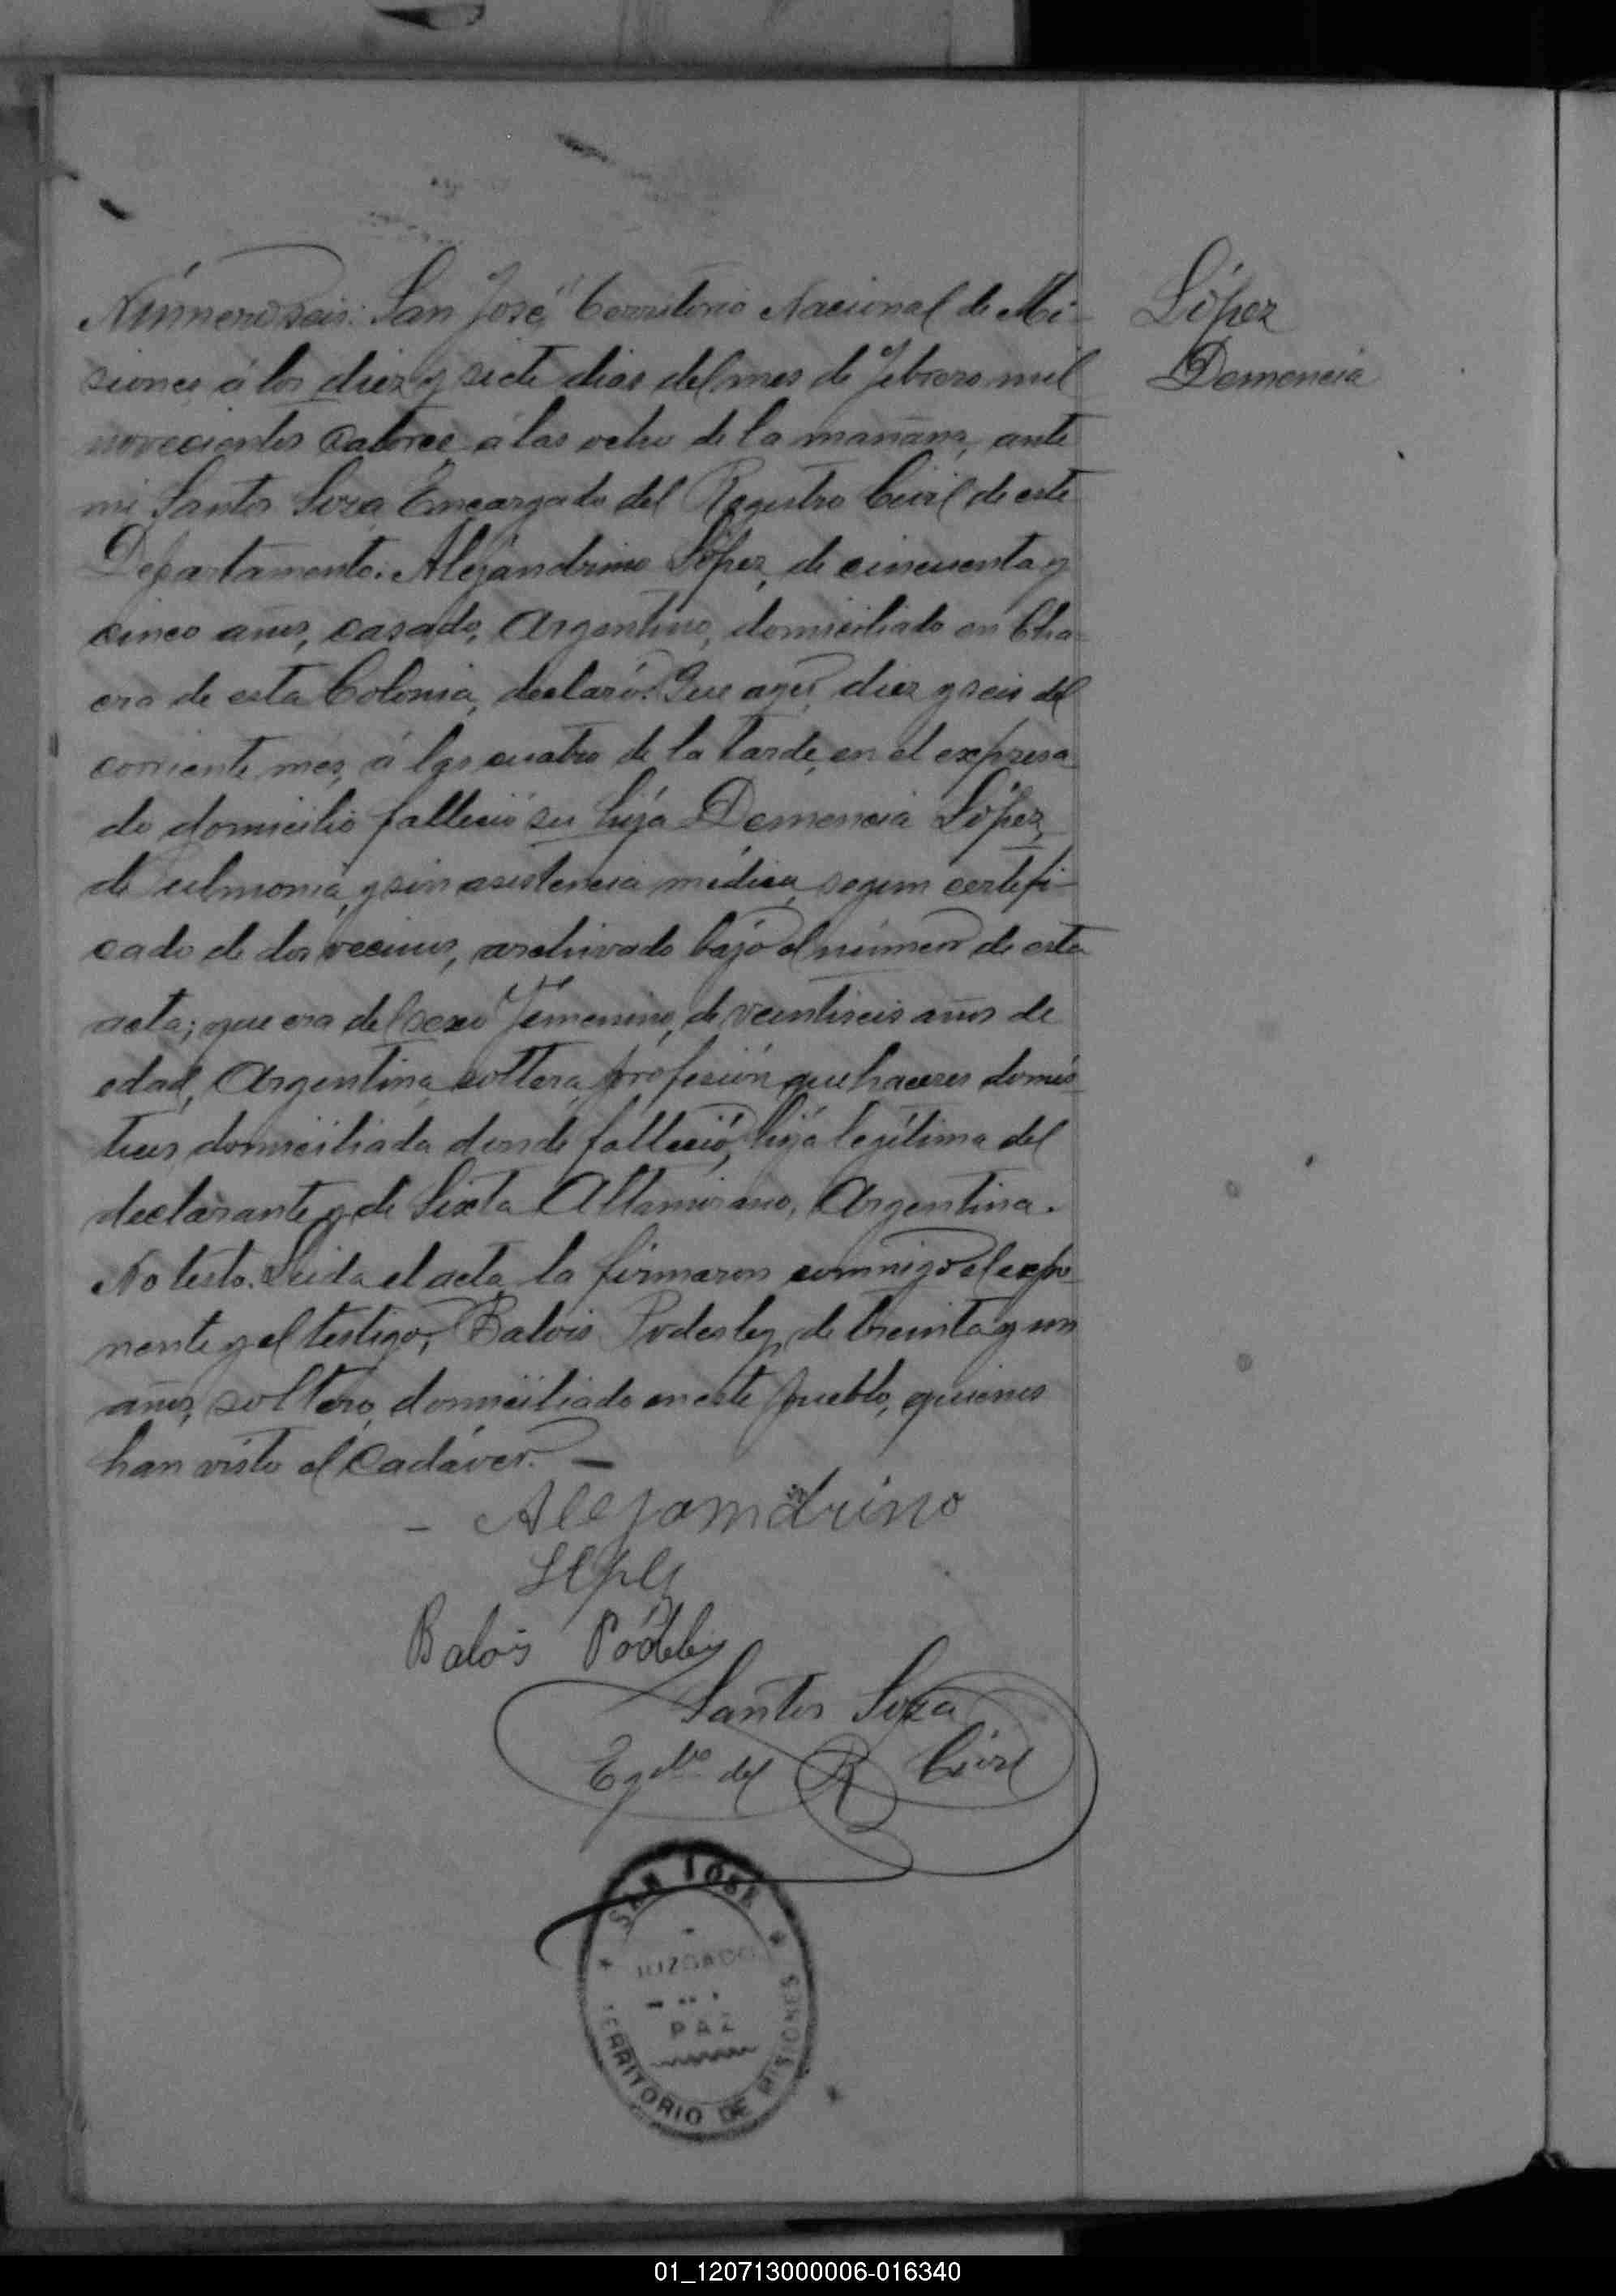 Número seis: San José, Territorio Nacional de Mi-
siones á los diez y siete dias del mes de Febrero mil
novecientos Catorce á las ocho de la mañana, ante
mi Santos Soza Encargado del Registro Civil de este
Departamento: Alejandrino López, de cincuenta y
cinco años, casado, Argentino, domiciliado en Cha-
cra de esta Colonia, declaró: Que ayer, diez y seis del
corriente mes, á las cuatro de la tarde, en el expresa-
do domicilio falleció su hija Demencia López,
de ulmonia, y sin asistencia médica, segun certifi-
cado de dos vecinos, archivado bajo el número de esta
acta; que era del sexo Femenino, de veintiseis años de
edad, Argentina, soltera, profesión quehaceres domés-
ticos, domiciliada donde falleció, hija legítima del
declarante y de Sixta Altamirano, Argentina.
No testo. Leida el acta, la firmaron conmigo el expo-
nente y el testigo, Balois, de treinta y un
años, soltero, domiciliado en este pueblo, quienes
han visto el Cadáver. —
López
Demencia
- Alejamdrino
Balois
Santos Soza
Egdo del R Civil
SAN JOSÉ
JUZGADO
PAZ
TERRITORIO DE MISIONES
01_120713000006-016340